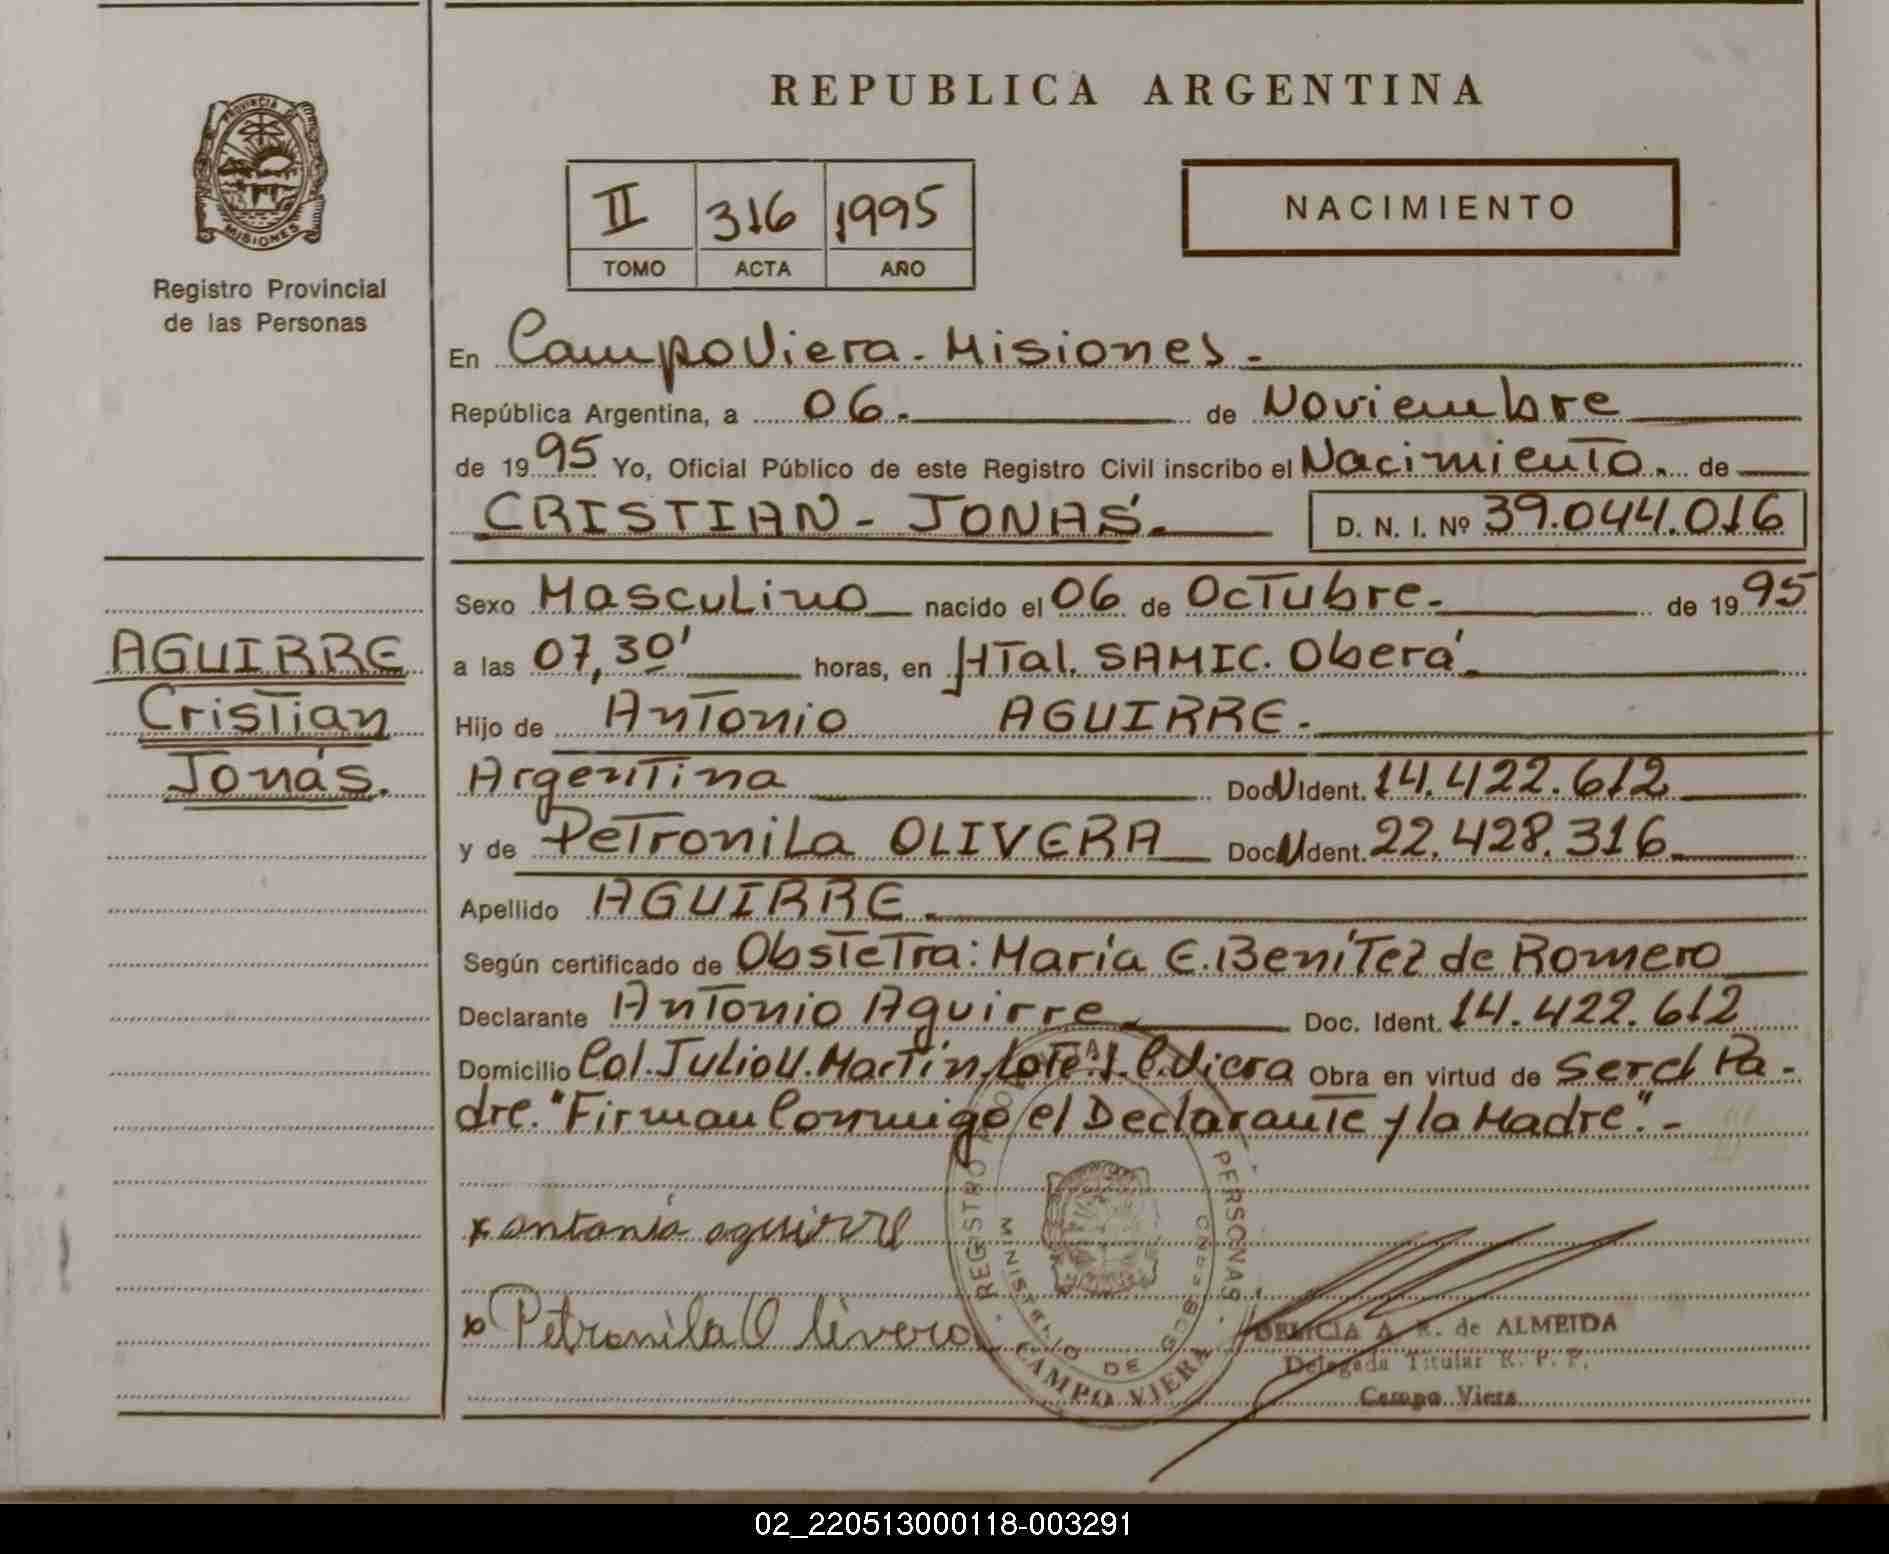 REPUBLICA ARGENTINA
PROVINCIA
MISIONES
Registro Provincial
de las Personas
II 316 1995
TOMO ACTA AÑO
NACIMIENTO
En CampoViera - Misiones -
República Argentina, a 06. de Noviembre
de 1995 Yo, Oficial Público de este Registro Civil inscribo el Nacimiento. de
CRISTIAN - JONÁS. D. N. I. Nº 39.044.016
AGUIRRE
Cristian
Jonás.
Sexo Masculino nacido el 06 de Octubre. de 1995
a las 07,30' horas, en Htal. SAMIC. Oberá
Hijo de Antonio AGUIRRE.
Argentina Doc. N Ident. 14.422.612
y de Petronila OLIVERA Doc. N Ident. 22.428.316
Apellido AGUIRRE.
Según certificado de Obstetra: María E. Benítez de Romero
Declarante Antonio Aguirre Doc. Ident. 14.422.612
Domicilio Col. Julio U. Martin Lote 1. C. Viera Obra en virtud de Ser el Pa-
dre. "Firman Conmigo el Declarante y la Madre". -
x antonio aguirre
x Petronila Olivera
REGISTRO PERSONAS
MINISTERIO DE
CAMPO VIERA
DELICIA A. R. de ALMEIDA
Delegada Titular R. P. P.
Campo Viera
02_220513000118-003291